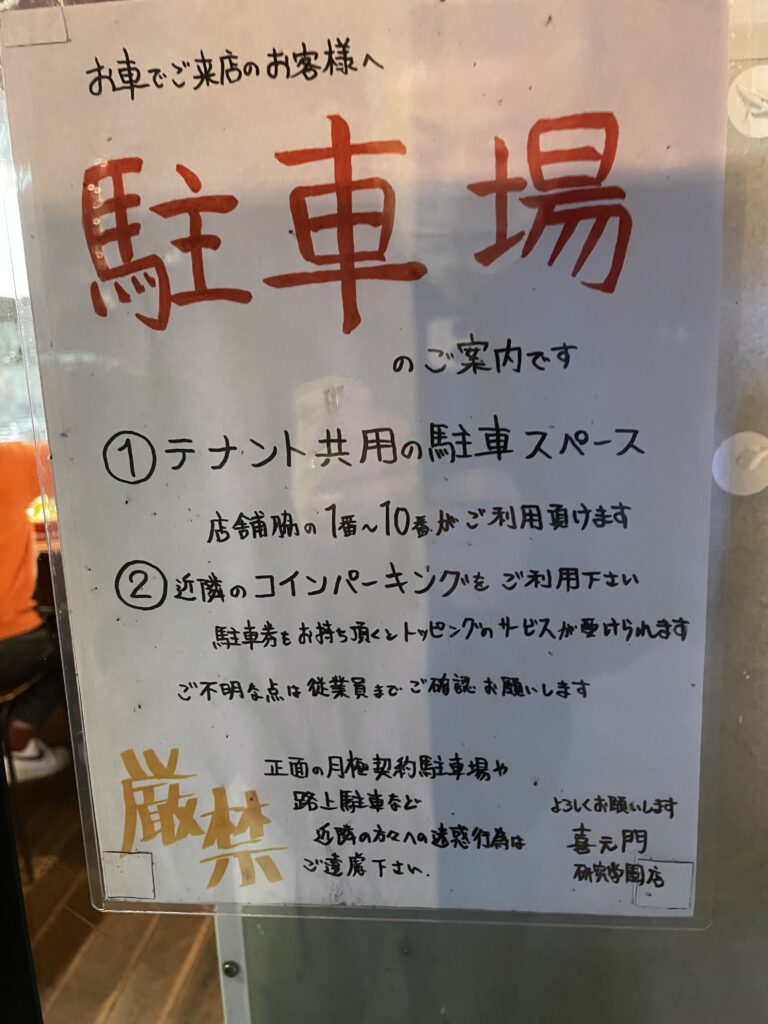 お車でご来店のお客様へ
駐車場
のご案内です
①テナント共用の駐車スペース
店舗脇の1番～10番がご利用頂けます
②近隣のコインパーキングをご利用下さい
駐車券をお持ち頂くとトッピングのサービスが受けられます
ご不明な点は従業員までご確認お願いします
厳禁
正面の月極契約駐車場や
路上駐車など
近隣の方々への迷惑行為は
ご遠慮下さい.
よろしくお願いします
喜元門
研究学園店